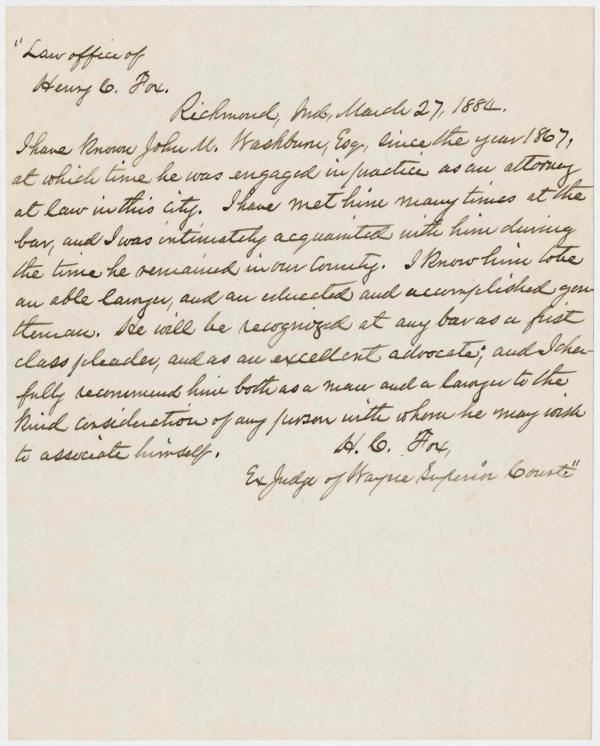 "Law office of
Henry C. Fox.
Richmond, Ind., March 27, 1884.
I have known John M. Washburn, Esq., since the year 1867,
at which time he was engaged in practice as an attorney
at law in this city. I have met him many times at the
bar, and I was intimately acquainted with him during
the time he remained in our County. I know him to be
an able lawyer, and an educated and accomplished gen-
tleman. He will be recognized at any bar as a first
class pleader, and as an excellent advocate; and I cheer-
fully recommend him both as a man and a lawyer to the
kind consideration of any person with whom he may wish
to associate himself.
H. C. Fox,
Ex Judge of Wayne Superior Court."